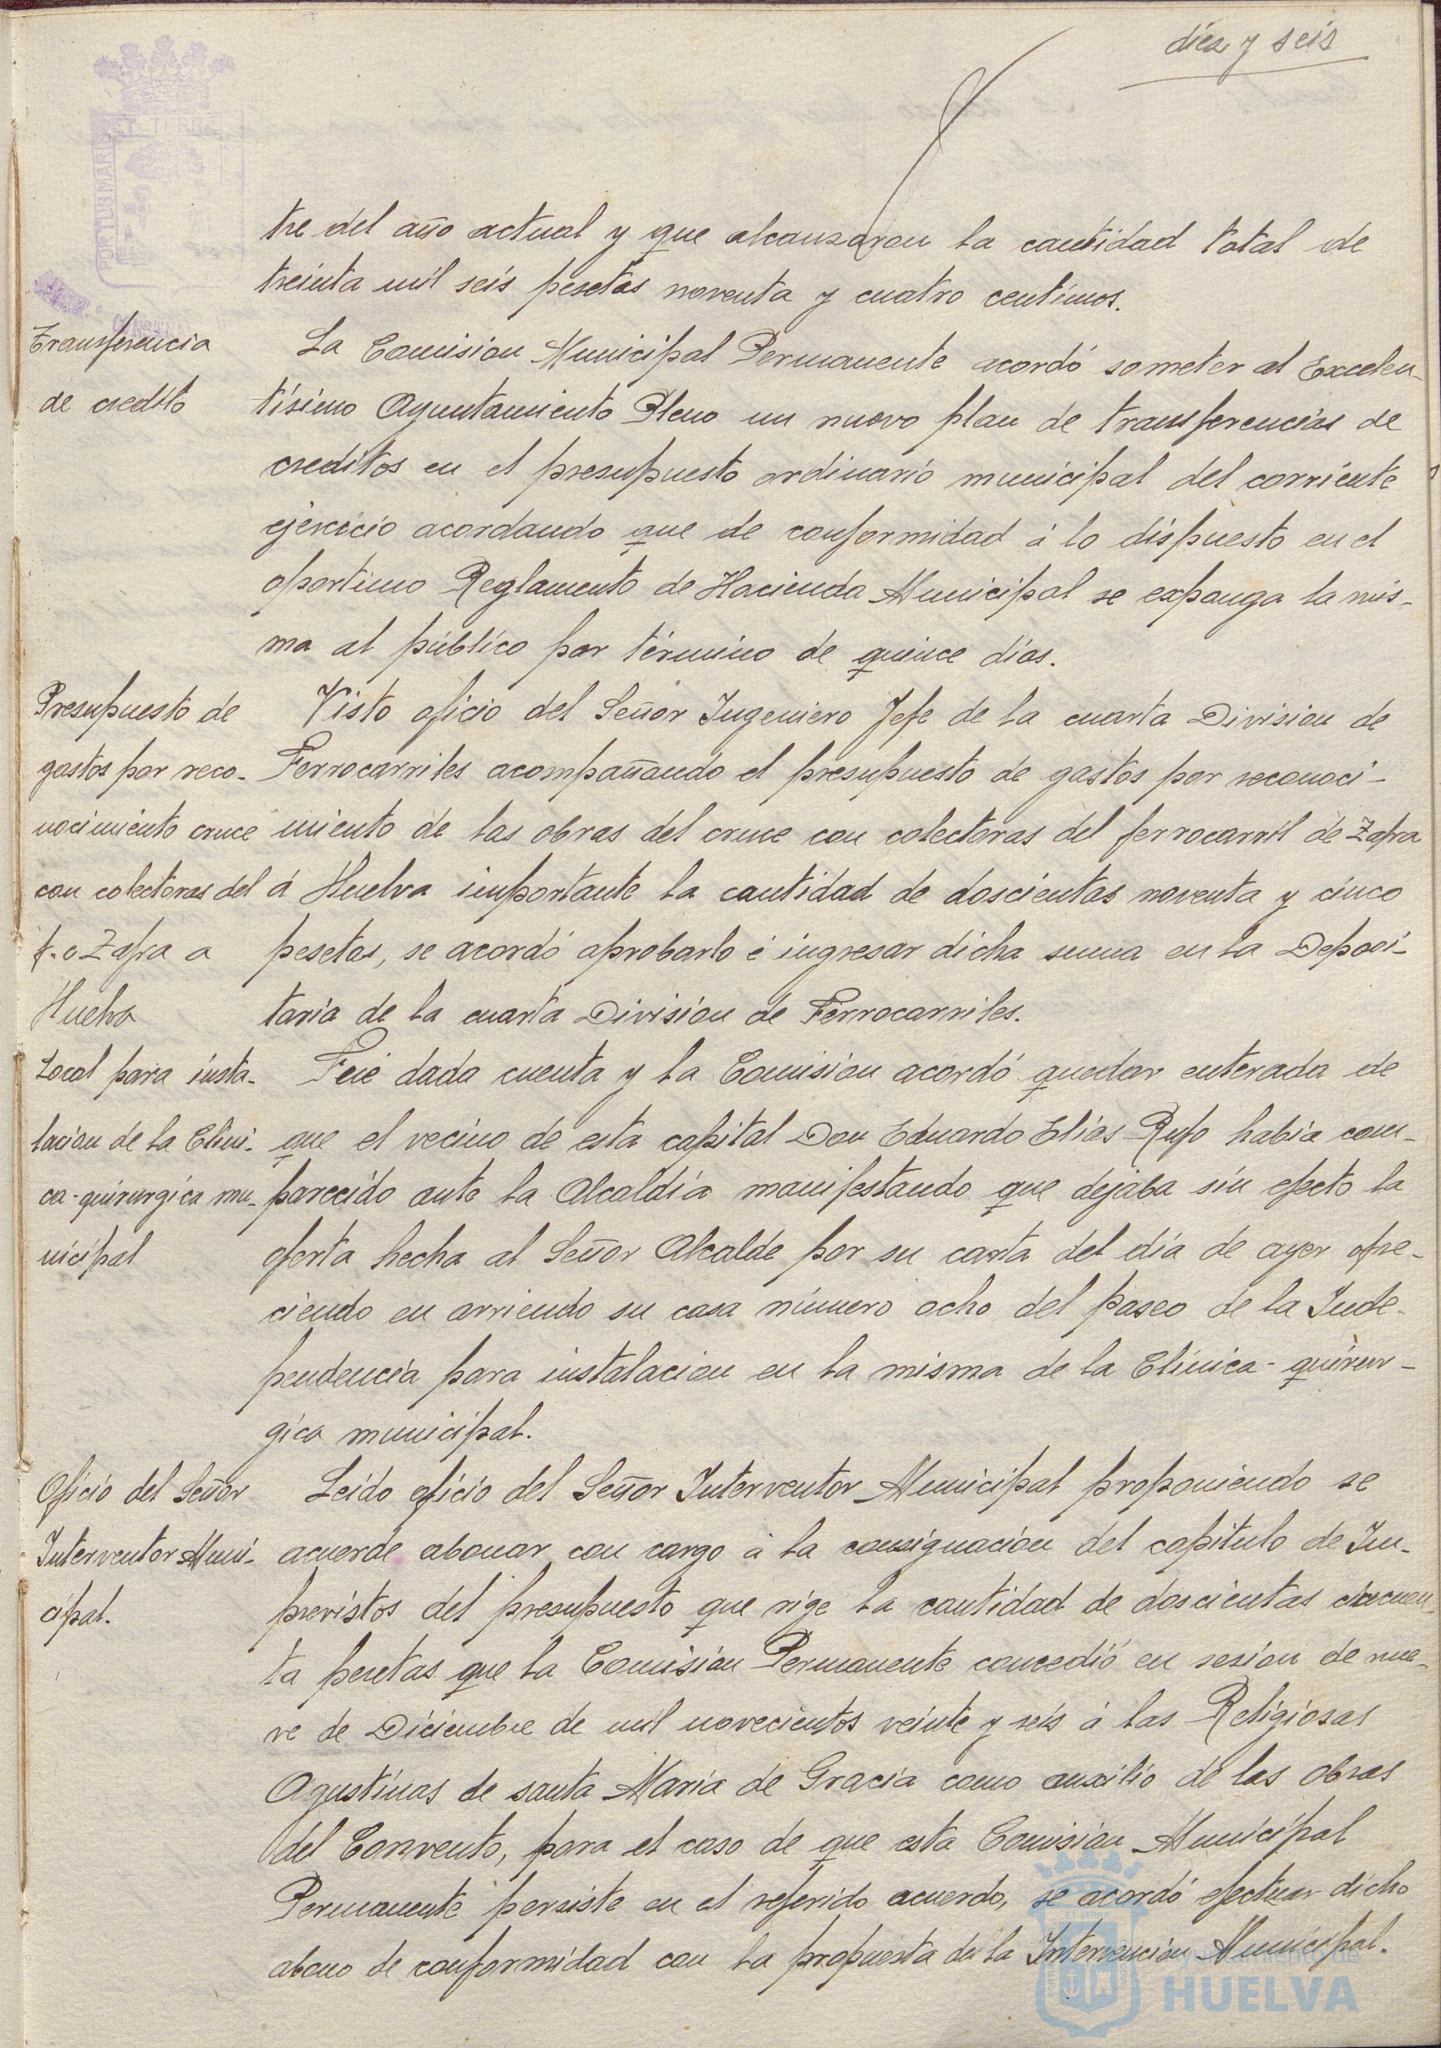 diez y seis
tre del año actual y que alcanzaran la cantidad total de
treinta mil seis pesetas noventa y cuatro centimos.
Transferencia
de credito
La Comision Municipal Permanente acordó someter al Excelen-
tísimo Ayuntamiento Pleno un nuevo plan de transferencias de
creditos en el presupuesto ordinario municipal del corriente
ejercicio acordando que de conformidad á lo dispuesto en el
oportuno Reglamento de Hacienda Municipal se exponga la mis-
ma al público por término de quince días.
Presupuesto de
gastos por reco-
nocimiento cruce
con colectoras del
f. c Zafra a
Huelva
Visto oficio del Señor Ingeniero Jefe de la cuarta Division de
Ferrocarriles acompañando el presupuesto de gastos por reconoci-
miento de las obras del cruce con colectoras del ferrocarril de Zafra
á Huelva importante la cantidad de doscientas noventa y cinco
pesetas, se acordó aprobarlo é ingresar dicha suma en la Deposi-
taria de la cuarta Division de Ferrocarriles.
Local para insta-
lacion de la Clini-
ca-quirurgica mu-
nicipal
Fué dada cuenta y la Comision acordó quedar enterada de
que el vecino de esta capital Don Eduardo Elias Rufo habia com-
parecido ante la Alcaldía manifestando que dejaba sin efecto la
oferta hecha al Señor Alcalde por su carta del día de ayer ofre-
ciendo en arriendo su casa número ocho del paseo de la Inde-
pendencia para instalacion en la misma de la Clínica-quirur-
gica municipal.
Oficio del Señor
Interventor Muni-
cipal.
Leido oficio del Señor Interventor Municipal proponiendo se
acuerde abonar con cargo á la consignación del capitulo de Im-
previstos del presupuesto que rige la cantidad de doscientas cincuen-
ta pesetas que la Comisión Permanente concedió en sesion de nue-
ve de Diciembre de mil novecientos veinte y seis á las Religiosas
Agustinas de santa María de Gracia como auxilio de las obras
del Convento, para el caso de que esta Comisión Municipal
Permanente persiste en el referido acuerdo, se acordó efectuar dicho
abono de conformidad con la propuesta de la Intervención Municipal.
PORTUS MARIS
ET TERRE
Ayuntamiento de
HUELVA